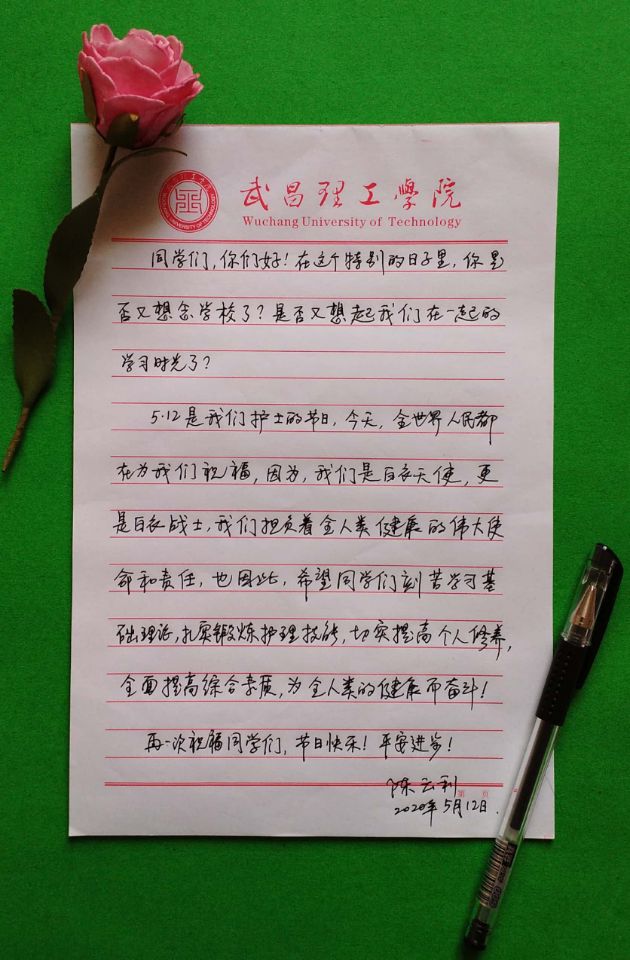 武昌理工學院
Wuchang University of Technology
同学们，你们好！在这个特别的日子里，你是
否又想念学校了？是否又想起我们在一起的
学习时光了？
5·12是我们护士的节日，今天，全世界人民都
在为我们祝福，因为，我们是白衣天使，更
是白衣战士，我们担负着全人类健康的伟大使
命和责任，也因此，希望同学们刻苦学习基
础理论，扎实锻炼护理技能，切实提高个人修养，
全面提高综合素质，为全人类的健康而奋斗！
再一次祝福同学们，节日快乐！平安进步！
第 页
陈云利
2020年5月12日.